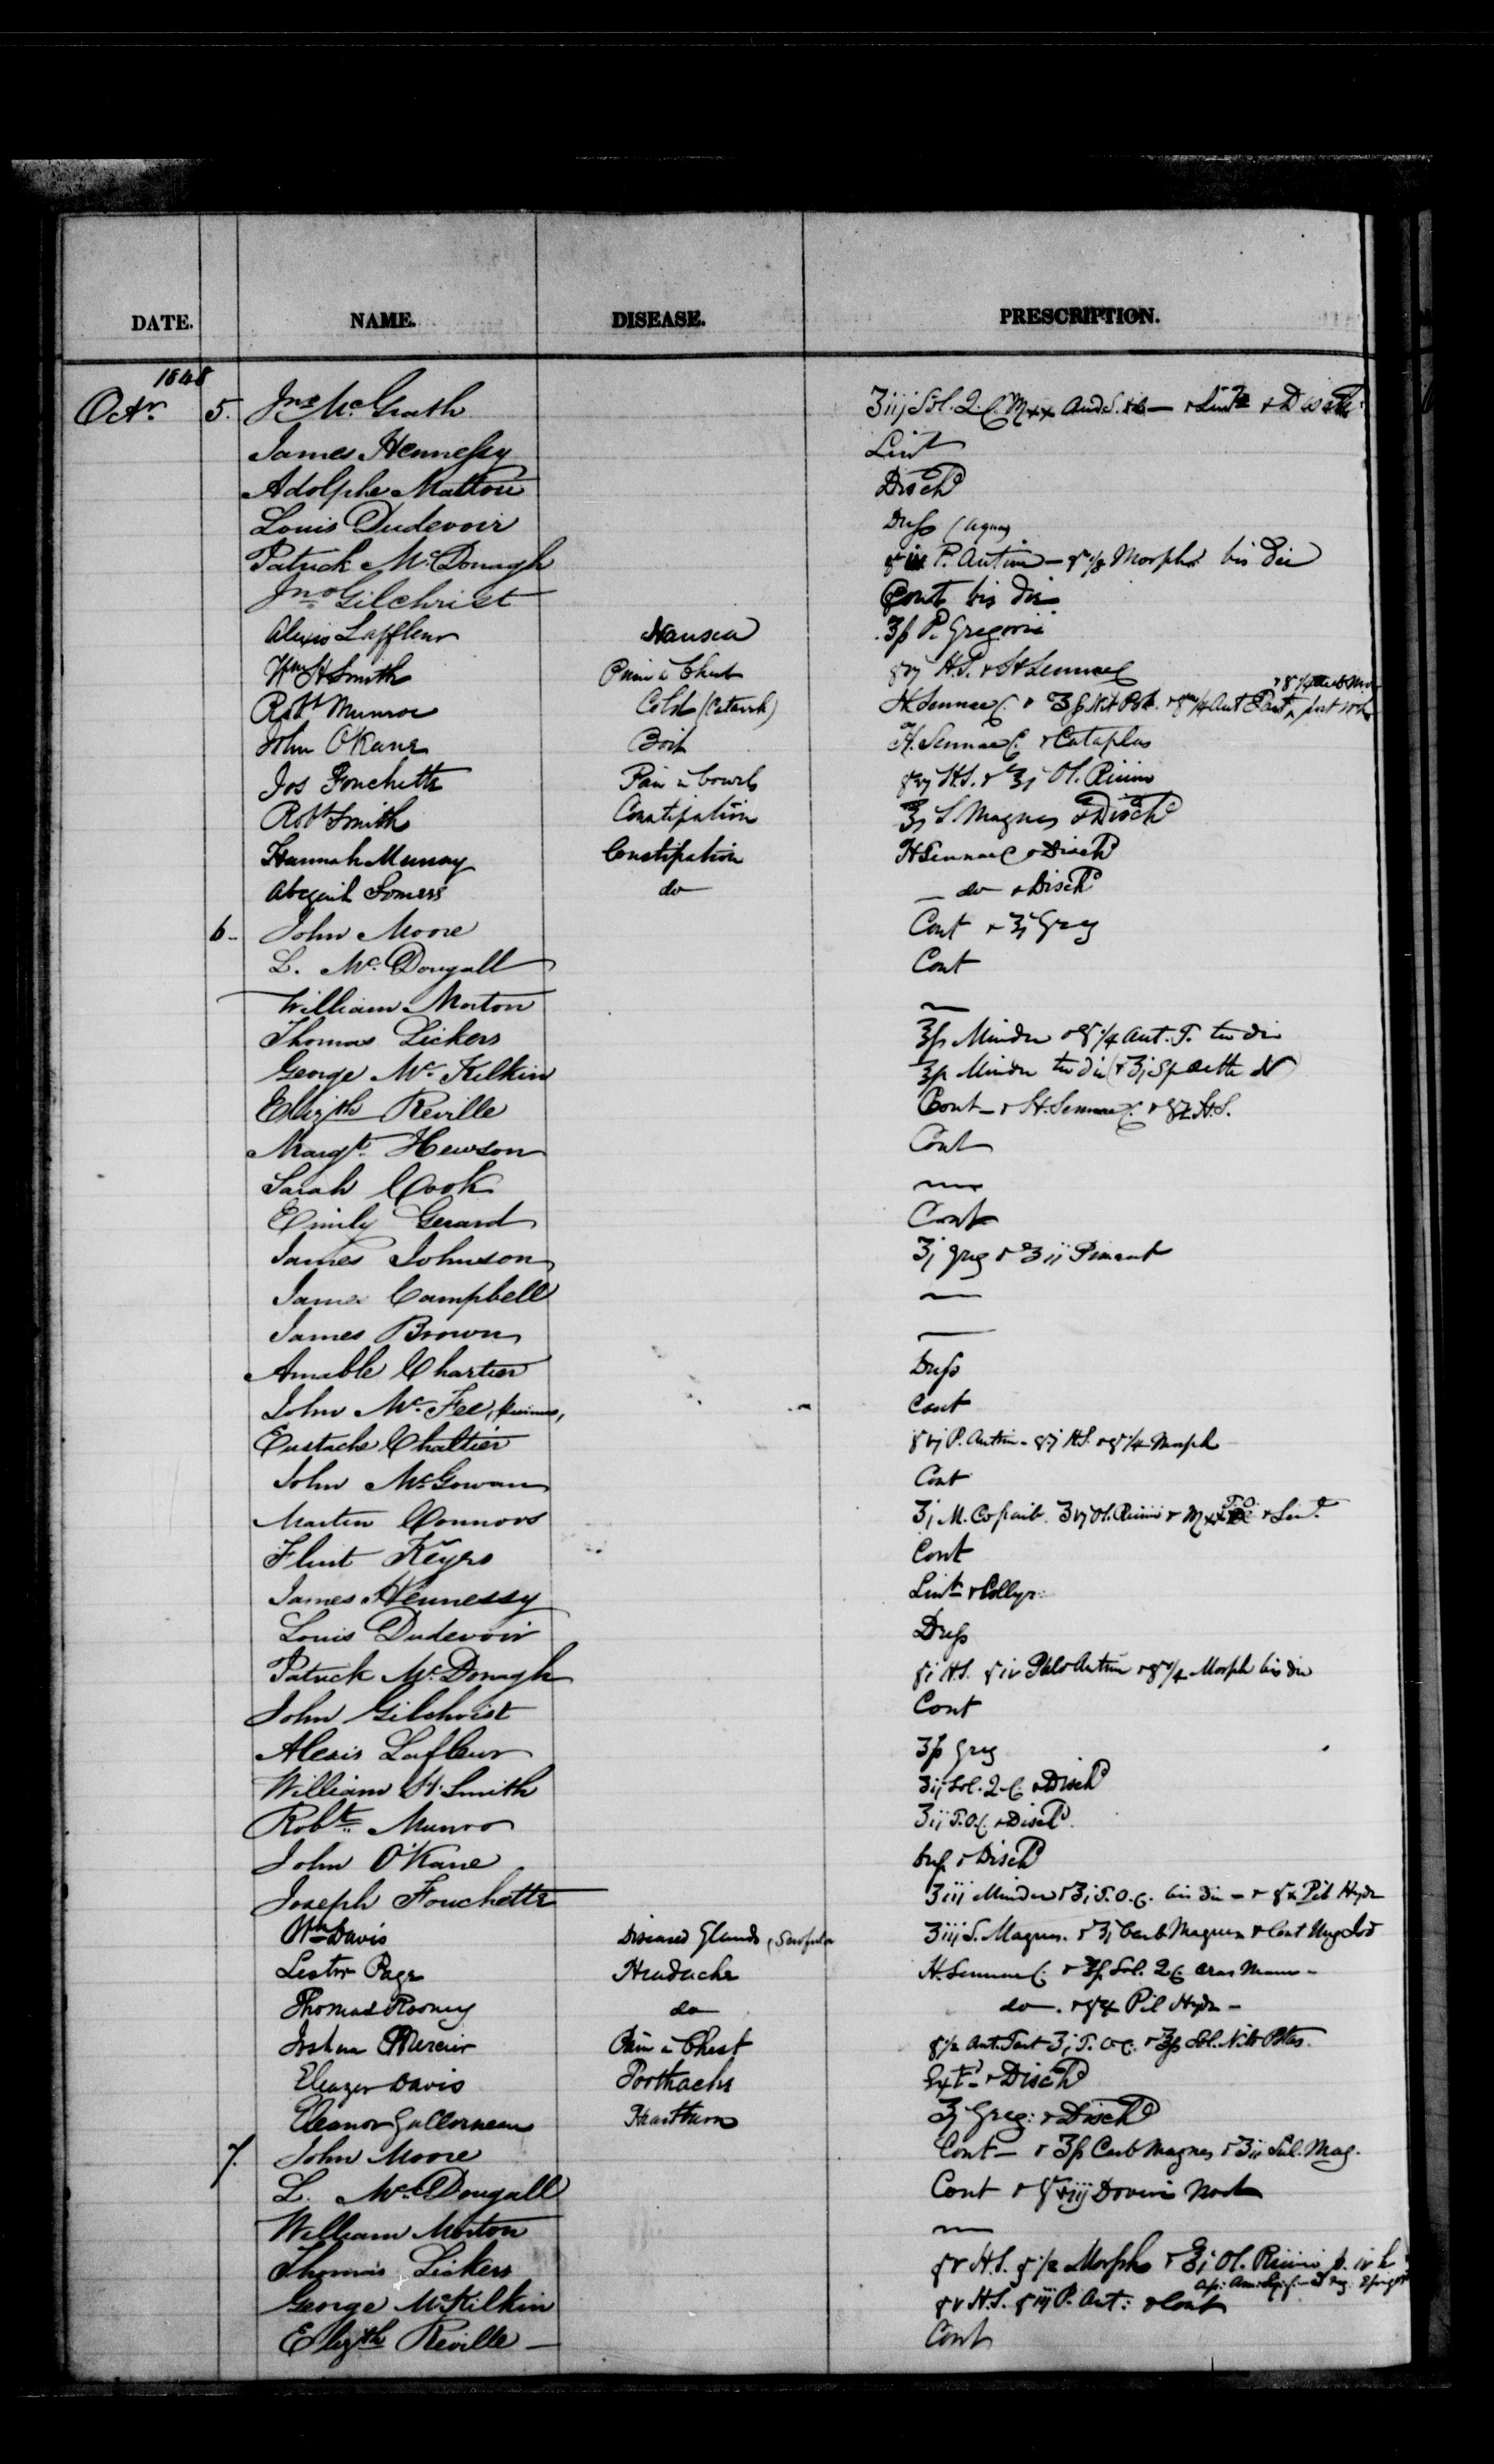 DATE. NAME. DISEASE. PRESCRIPTION.
1848
Octr. 5. Jno. McGrath ʒiij Sol. Q. C. ♏xx & Disch
James Hennessy Lint
Adolphe Matton Disch
Louis Dudevoir Dress (aqua)
Patrick McDonagh P. Antim - gr 1/8 Morph bis die
Jno. Gilchrist Cont bis die
Alexis Laffleur Nausea ʒß P. Gregorii
Wm H Smith Pain in Chest gr v H.S. & H Sennae C
Robt Munroe Cold (Catarrh) H Sennae C. & ʒß Nit Pot. & gr 1/4 Ant Tart
John O'Kane Boil H. Sennae C. & Cataplas
Jos Fouchette Pain in bowels H.S. & ℥j Ol. Ricini
Robt Smith Constipation ℥j S. Magnes & Disch
Hannah Murray Constipation H Sennae C & Disch
Abegail Somers do do & Disch
6. John Moore Cont & ʒj Greg
L. McDougall Cont
William Morton —
Thomas Lickers ʒß Minder & gr 1/4 Ant. T. ter die
George McKilkin ʒß Minder ter die (& ʒj Sp aeth N)
Elizth Reville Cont - & H. Sennae C. & gr x H.S.
Margt. Hewson Cont
Sarah Cook —
Emily Gerard Cont
James Johnson ʒj Greg & ℥ij Piment
James Campbell —
James Brown —
Amable Chartier Dress
John McFee, Cont
Eustache Chaltier gr vj P. Antim - gr j H.S. & gr 1/4 Morph
John McGowan Cont
Martin Connors ʒj M. Copaib. ʒvj Ol. Ricini & ♏xx T.O. & Lint
Flint Keyes Cont
James Hennessy Lint & Collyr:
Louis Dudevoir Dress
Patrick McDonagh gr i H.S. gr iv Pulv Antim & gr 1/4 Morph bis die
John Gilchrist Cont
Alexis Lafleur ʒß Greg
William H. Smith ʒij Sol. Q C. & Disch
Robt. Munro ʒij T.O.C. & Disch.
John O'Kane Dress & Disch
Joseph Fouchette ʒiij Minder & ʒj T.O.C. bis die - & gr x Pil Hydr
Wm Davis Diseased Glands, Scrofula ʒiij S. Magnes. & ʒj Carb Magnes & Cont Ung Iod
Lester Page Headache H. Sennae C. & ℥ß Sol. Q C. cras Mane -
Thomas Rooney do do. & gr x Pil Hydr -
Joshua Mercier Pain in Chest gr 1/2 Ant. Tart ʒj T.O.C. & ʒß Sol. Nit Potas.
Eleazer Davis Toothache Extd & Disch
Eleanor Gallorneau Heartburn ʒj Greg: & Disch
7. John Moore Cont - & ʒß Carb Magnes & ʒij Sul. Mag.
L. McDougall Cont & gr xiij Doveri Noct
William Morton —
Thomas Lickers gr v H.S. gr 1/2 Morph & ℥j Ol. Ricini p. iv h
George McKilkin gr v H.S. gr iij P. Ant: & Cont
Elizth Reville - Cont